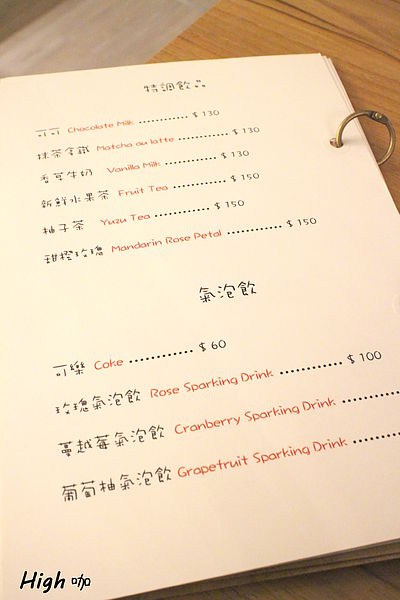 特調飲品
可可 Chocolate Milk ............ $ 130
抹茶拿鐵 Matcha au latte ............ $ 130
香草牛奶 Vanilla Milk ............ $ 130
新鮮水果茶 Fruit Tea ............ $ 150
柚子茶 Yuzu Tea ............ $ 150
甜橙玫瑰 Mandarin Rose Petal ............ $ 150
氣泡飲
可樂 Coke ............ $ 60
玫瑰氣泡飲 Rose Sparking Drink ............ $ 100
蔓越莓氣泡飲 Cranberry Sparking Drink ............
葡萄柚氣泡飲 Grapefruit Sparking Drink ............
High 咖